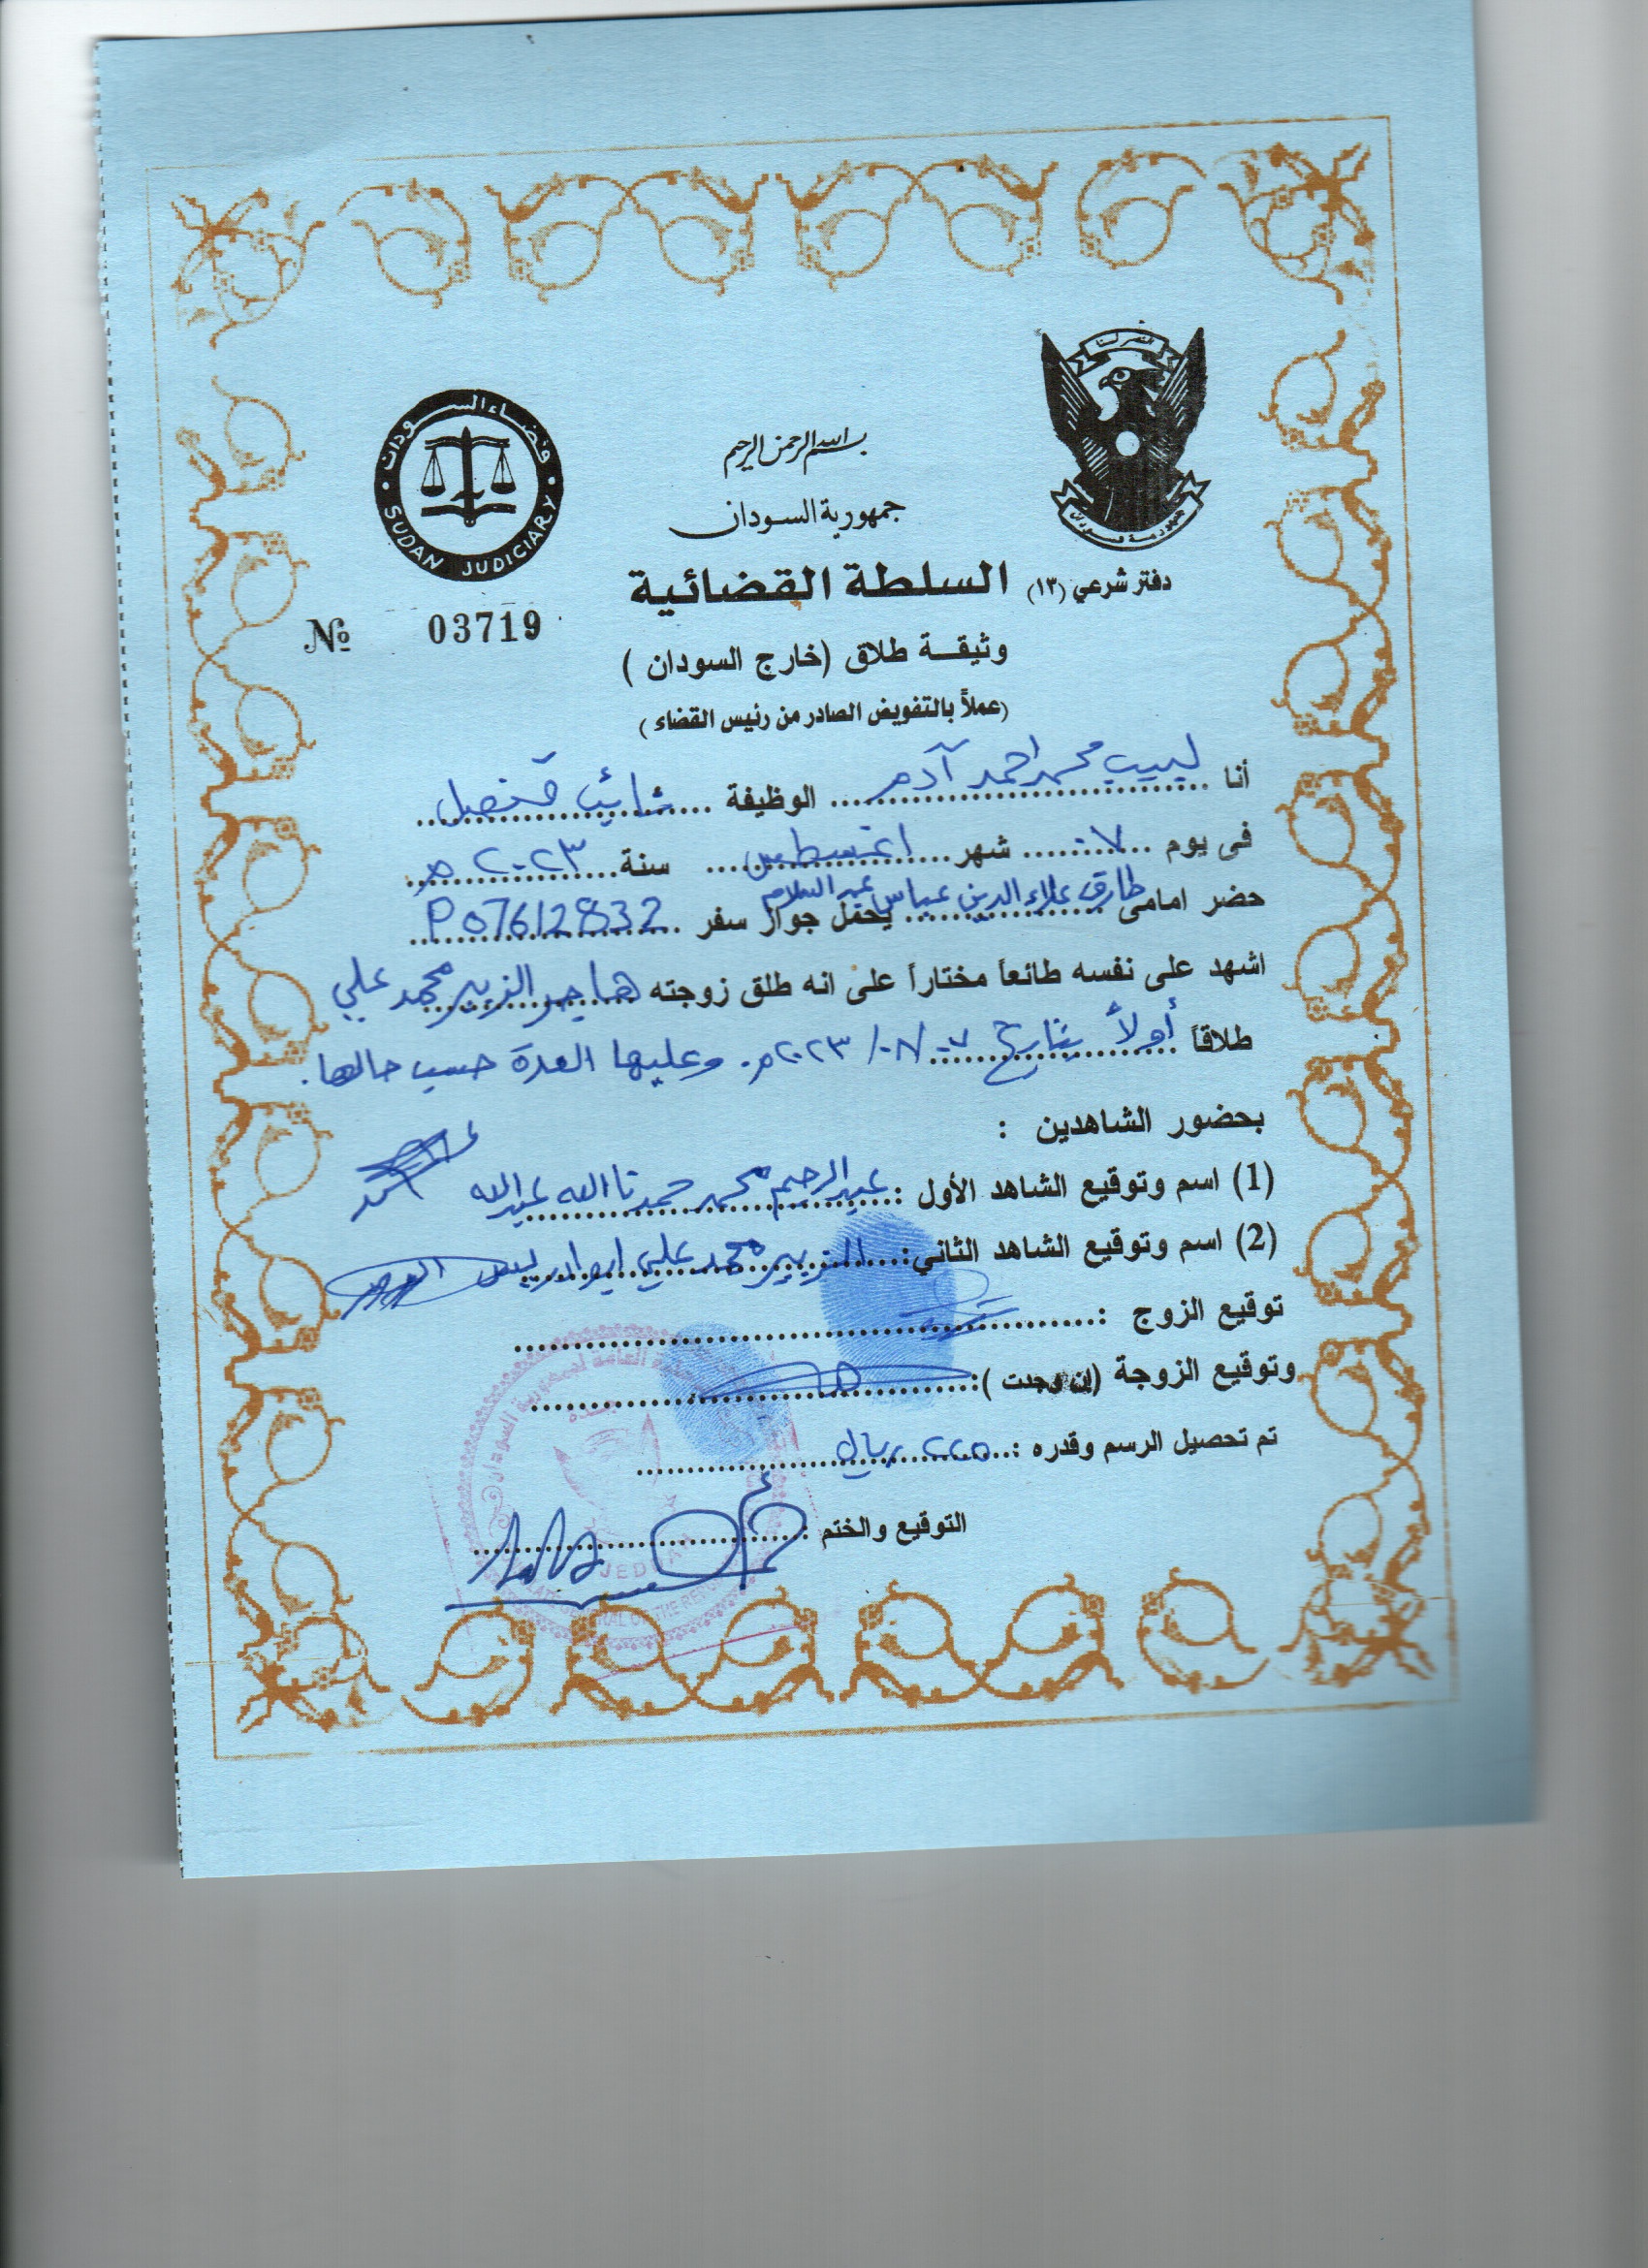 النصر لنا
جمهورية السودان
قضاء السودان
SUDAN JUDICIARY
بسم الله الرحمن الرحيم
جمهورية السودان
دفتر شرعي (١٣) السلطة القضائية
№ 03719
وثيقة طلاق (خارج السودان )
(عملاً بالتفويض الصادر من رئيس القضاء )
أنا لبيب محمد احمد آدم الوظيفة نائب قنصل
فى يوم ٠٧ شهر اغسطس سنة ٢٠٢٣م
حضر امامى طارق علاء الدين عباس عبد السلام يحمل جواز سفر P07612832
اشهد على نفسه طائعاً مختاراً على انه طلق زوجته هاجر الزبير محمد علي
طلاقاً أولاً بتاريخ ٠٧/٠٨/٢٠٢٣م. وعليها العدة حسب حالها.
بحضور الشاهدين :
(1) اسم وتوقيع الشاهد الأول : عبد الرحيم محمد حمدنا الله عبد الله
(2) اسم وتوقيع الشاهد الثاني: الزبير محمد علي ادريس
توقيع الزوج :
وتوقيع الزوجة (إن وجدت ):
تم تحصيل الرسم وقدره : ريال
التوقيع والختم :
العامة لجمهورية السودان
جدة
JEDDAH
GENERAL OF THE